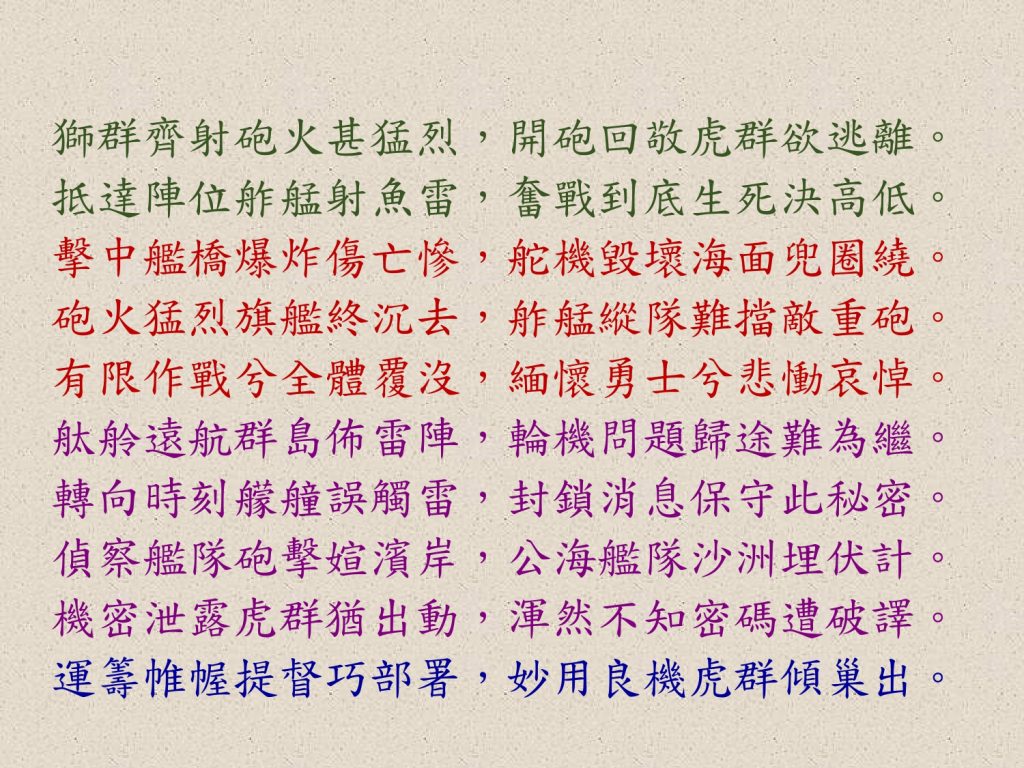 獅群齊射砲火甚猛烈，開砲回敬虎群欲逃離。
抵達陣位舴艋射魚雷，奮戰到底生死決高低。
擊中艦橋爆炸傷亡慘，舵機毀壞海面兜圈繞。
砲火猛烈旗艦終沉去，舴艋縱隊難擋敵重砲。
有限作戰兮全體覆沒，緬懷勇士兮悲慟哀悼。
舦舲遠航群島佈雷陣，輪機問題歸途難為繼。
轉向時刻艨艟誤觸雷，封鎖消息保守此秘密。
偵察艦隊砲擊媗濱岸，公海艦隊沙洲埋伏計。
機密泄露虎群猶出動，渾然不知密碼遭破譯。
運籌帷幄提督巧部署，妙用良機虎群傾巢出。